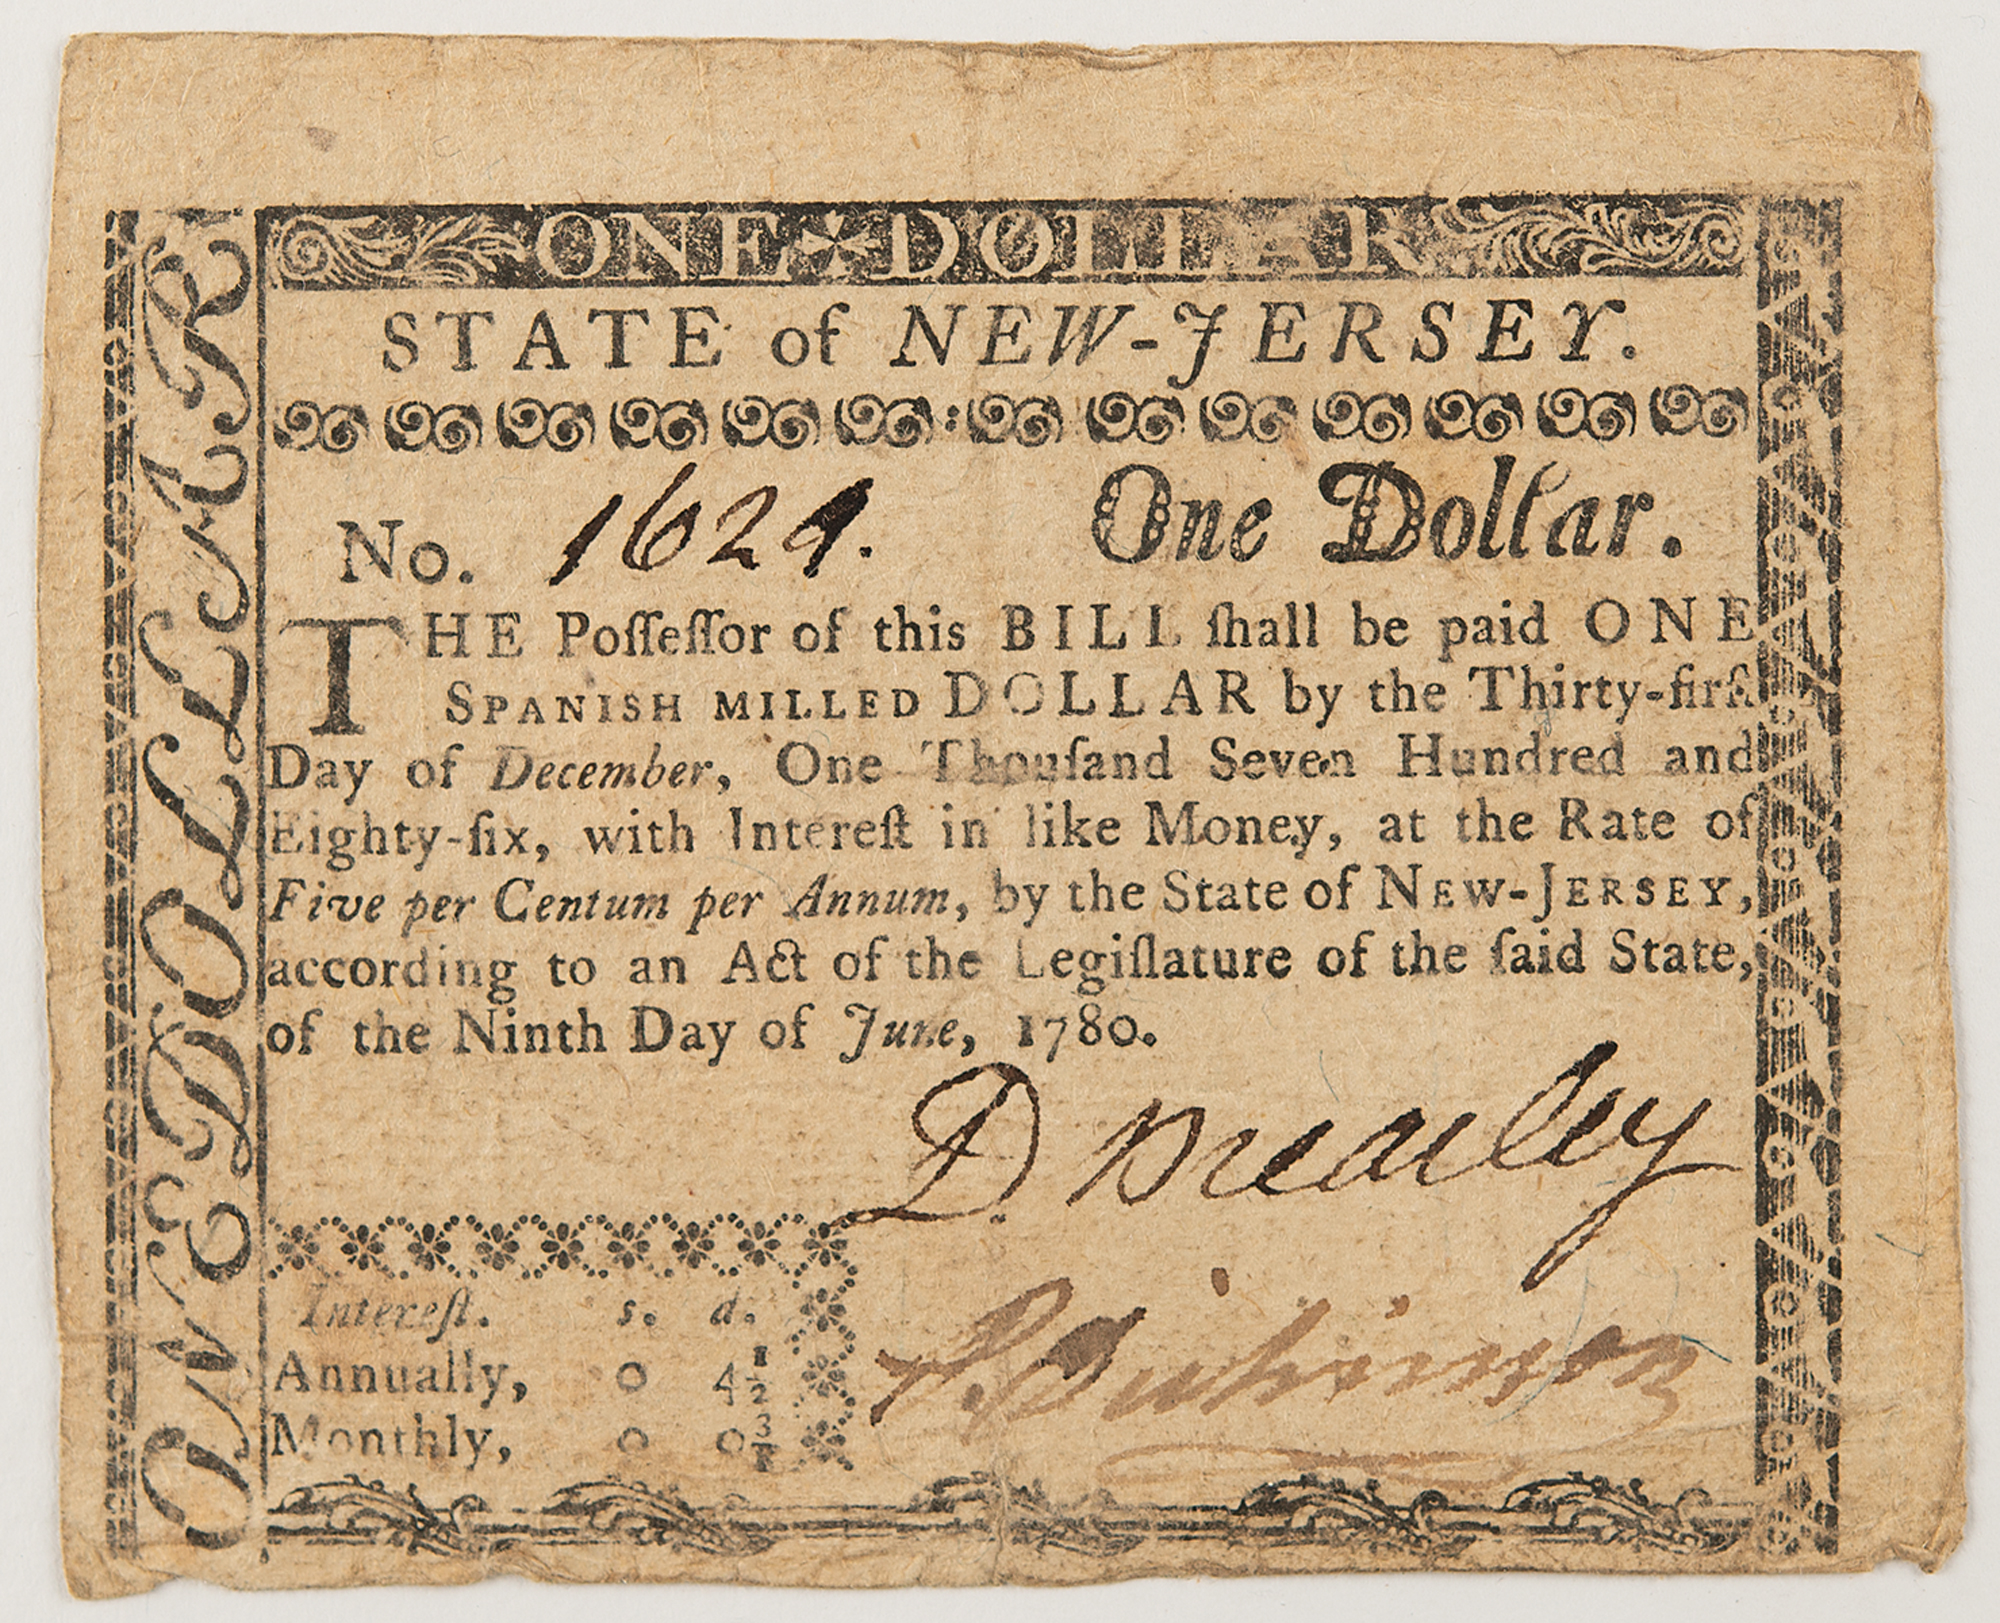 ONE DOLLAR
ONE DOLLAR
STATE of NEW-JERSEY.
No. 1624. One Dollar.
THE Poſſeſſor of this BILL ſhall be paid ONE
SPANISH MILLED DOLLAR by the Thirty-firſt
Day of December, One Thouſand Seven Hundred and
Eighty-ſix, with Intereſt in like Money, at the Rate of
Five per Centum per Annum, by the State of NEW-JERSEY,
according to an Act of the Legiſlature of the ſaid State,
of the Ninth Day of June, 1780.
D. Brearley
Intereſt. s. d.
Annually, 0 4 1/2
Monthly, 0 0 3/8
P. Dickinson